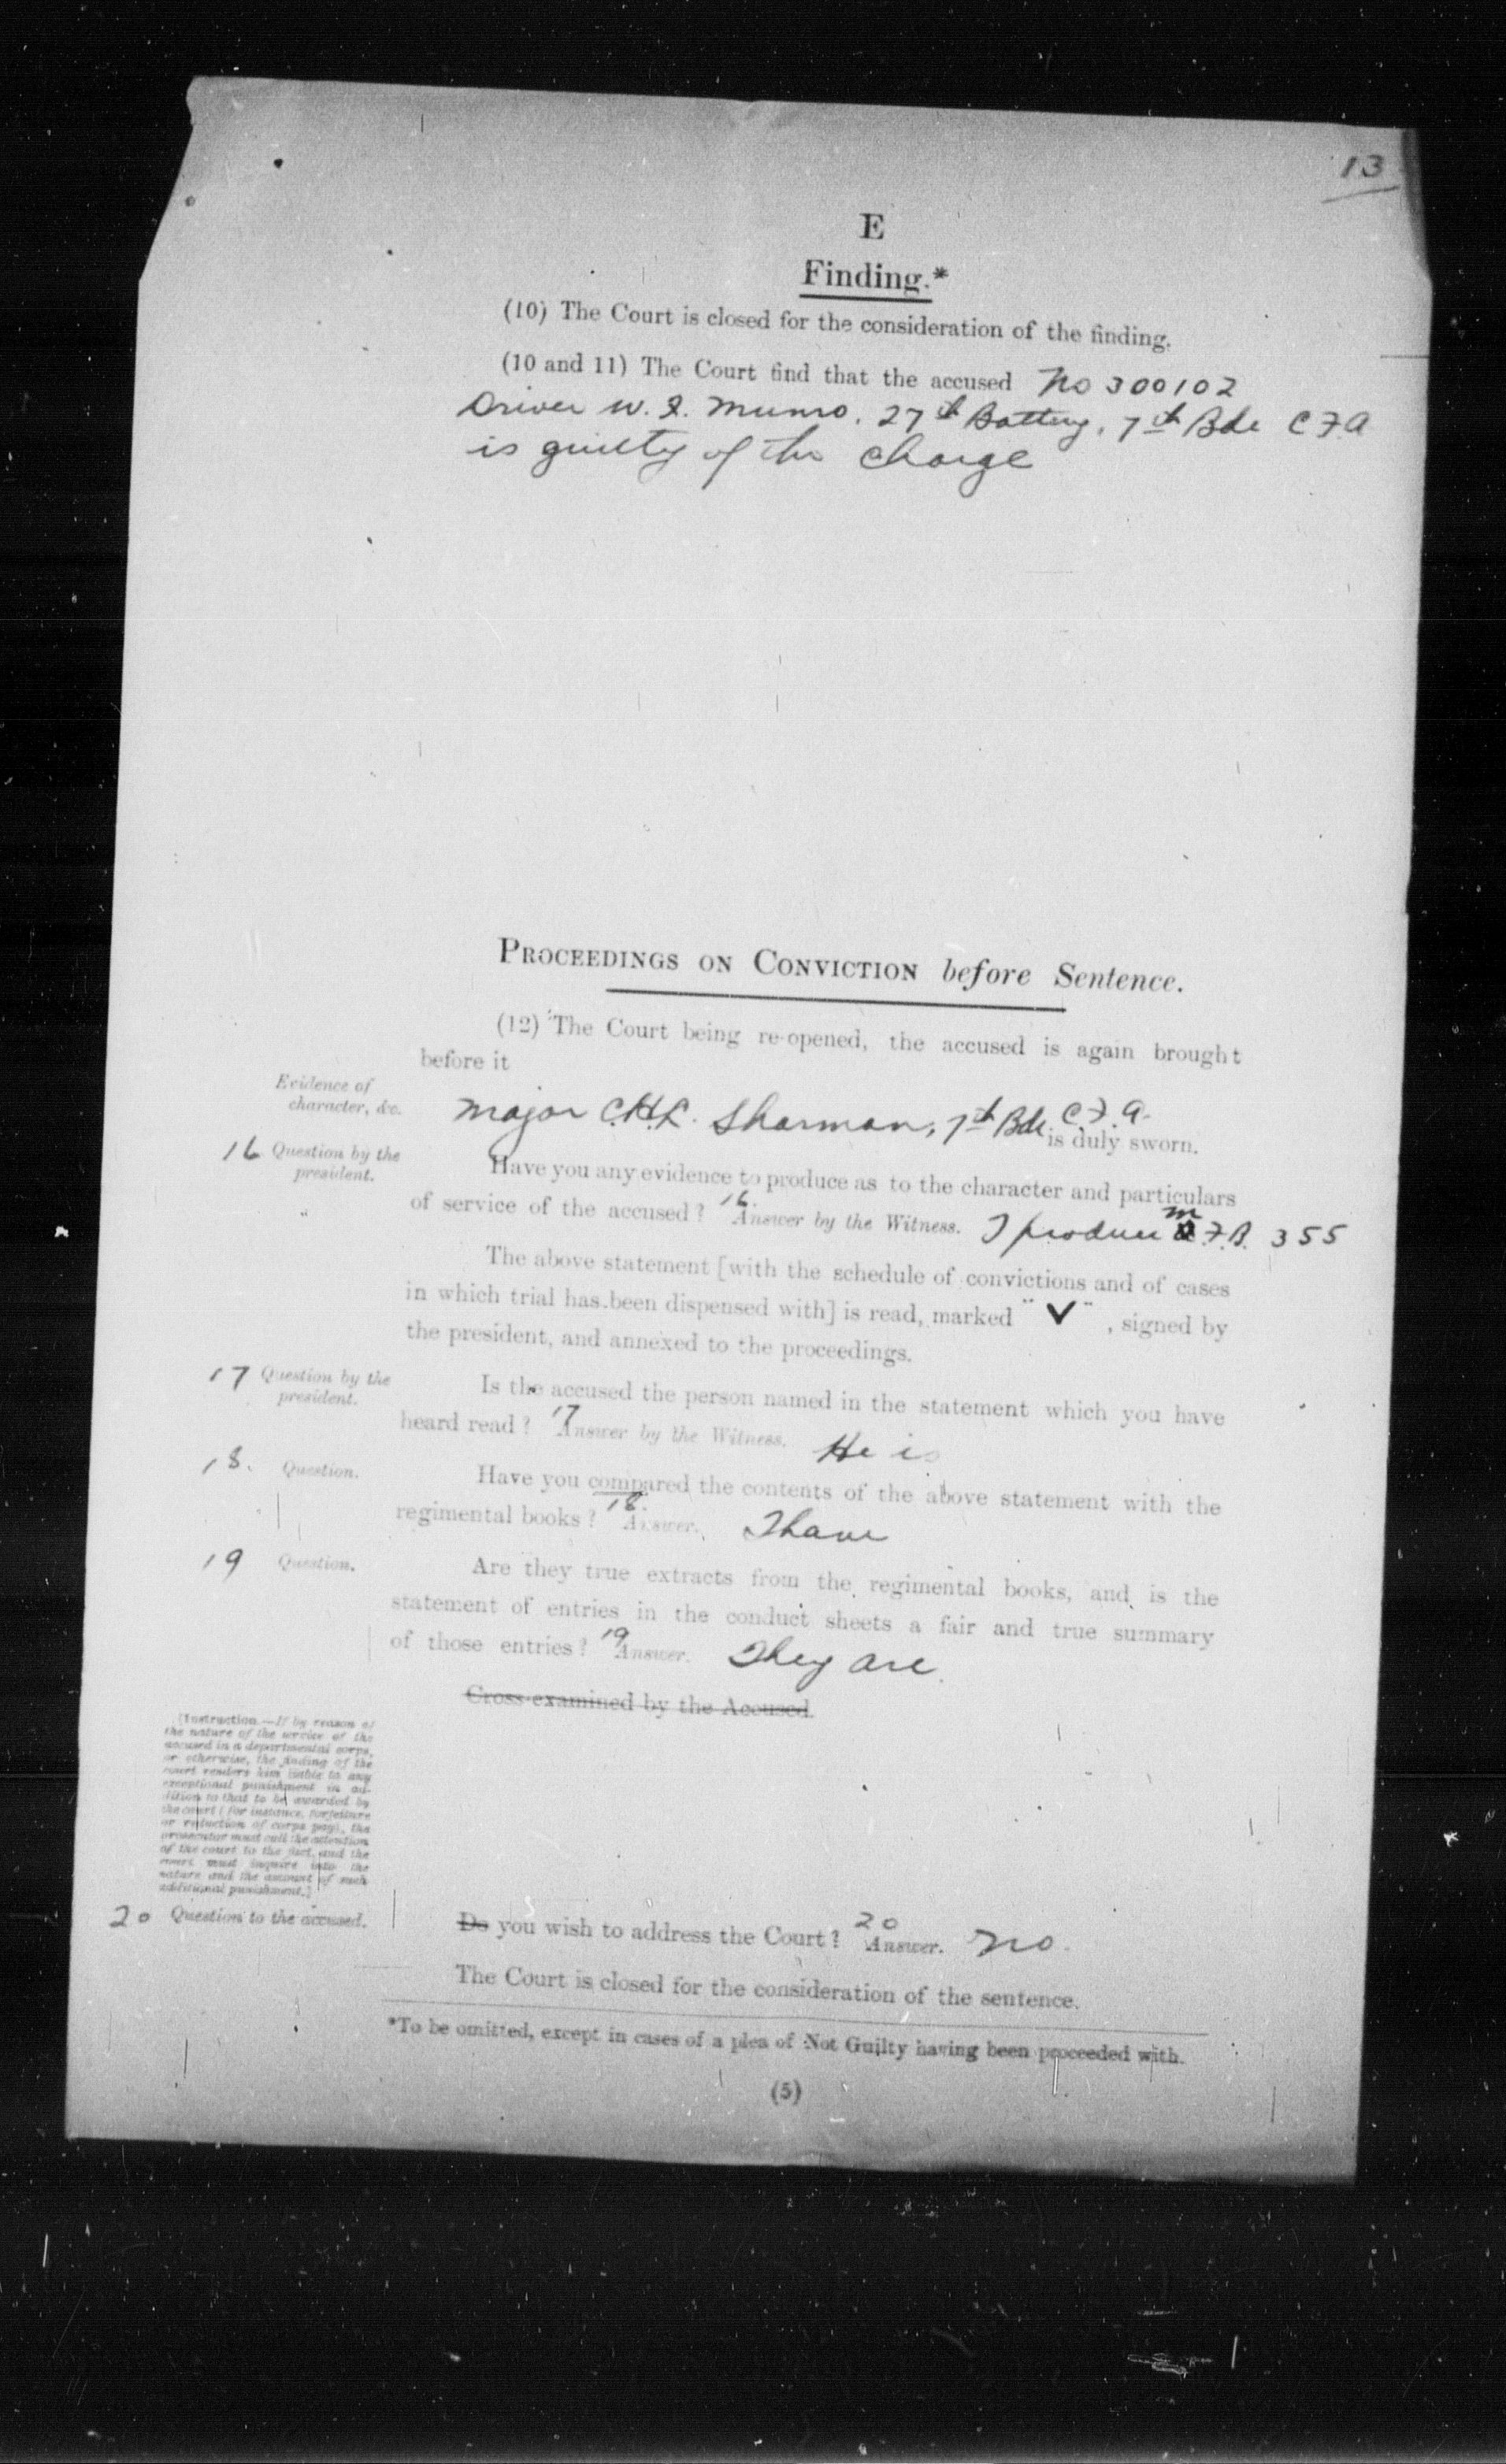 13
E
Finding.*
(10) The Court is closed for the consideration of the finding.
(10 and 11) The Court find that the accused No 300102
Driver W. I. Munro. 27th Battery. 7th Bde C F A
is guilty of the charge
PROCEEDINGS ON CONVICTION before Sentence.
(12) The Court being re-opened, the accused is again brought
before it
Evidence of
character, &c.
Major C.H.L. Sharman, 7th Bde. C.F.A.
is duly sworn.
16 Question by the
president.
Have you any evidence to produce as to the character and particulars
of service of the accused? 16. Answer by the Witness. I produce M.F.B. 355
The above statement [with the schedule of convictions and of cases
in which trial has been dispensed with] is read, marked " V ", signed by
the president, and annexed to the proceedings.
17 Question by the
president.
Is the accused the person named in the statement which you have
heard read? 17 Answer by the Witness. He is
18. Question.
Have you compared the contents of the above statement with the
regimental books? 18. Answer. I have
19 Question.
Are they true extracts from the regimental books, and is the
statement of entries in the conduct sheets a fair and true summary
of those entries? 19 Answer. They are.
Cross-examined by the Accused.
[Instruction.—If by reason of
the nature of the service of the
accused in a departmental corps,
or otherwise, the finding of the
court renders him liable to any
exceptional punishment in ad-
dition to that to be awarded by
the court (for instance, forfeiture
or reduction of corps pay), the
prosecutor must call the attention
of the court to the fact, and the
court must inquire into the
nature and the amount of such
additional punishment.]
20 Question to the accused.
Do you wish to address the Court? 20 Answer. No.
The Court is closed for the consideration of the sentence.
*To be omitted, except in cases of a plea of Not Guilty having been proceeded with.
(5)